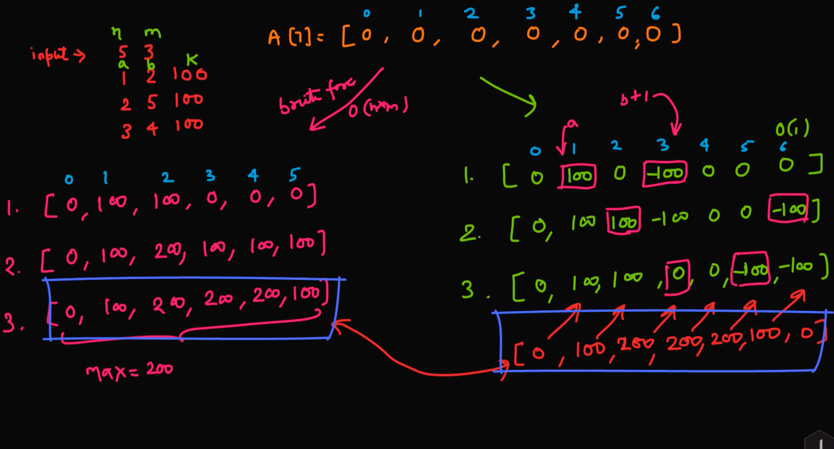 n m
input → 5 3
a b K
1 2 100
2 5 100
3 4 100
0 1 2 3 4 5 6
A[7] = [0, 0, 0, 0, 0, 0, 0]
brute force
O(n*m)
0 1 2 3 4 5
1. [0, 100, 100, 0, 0, 0]
2. [0, 100, 200, 100, 100, 100]
3. [0, 100, 200, 200, 200, 100]
max = 200
a b+1
O(1)
0 1 2 3 4 5 6
1. [0 100 0 -100 0 0 0]
2. [0, 100 100 -100 0 0 -100]
3. [0, 100, 100, 0, 0, -100, -100]
[0, 100, 200, 200, 200, 100, 0]